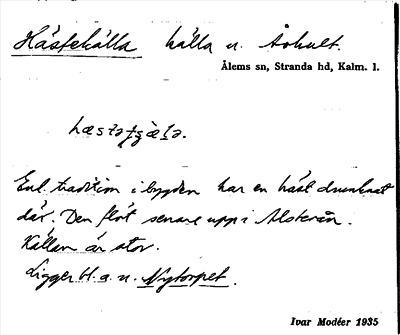 Hästekälla källa n. Åshult.
Ålems sn, Stranda hd, Kalm. l.
Enl. tradition i bygden har en häst drunknat
där. Den flöt senare upp i Alsterån.
Källan är stor.
Ligger t.h. a. n. Nytorpet.
Ivar Modéer 1935